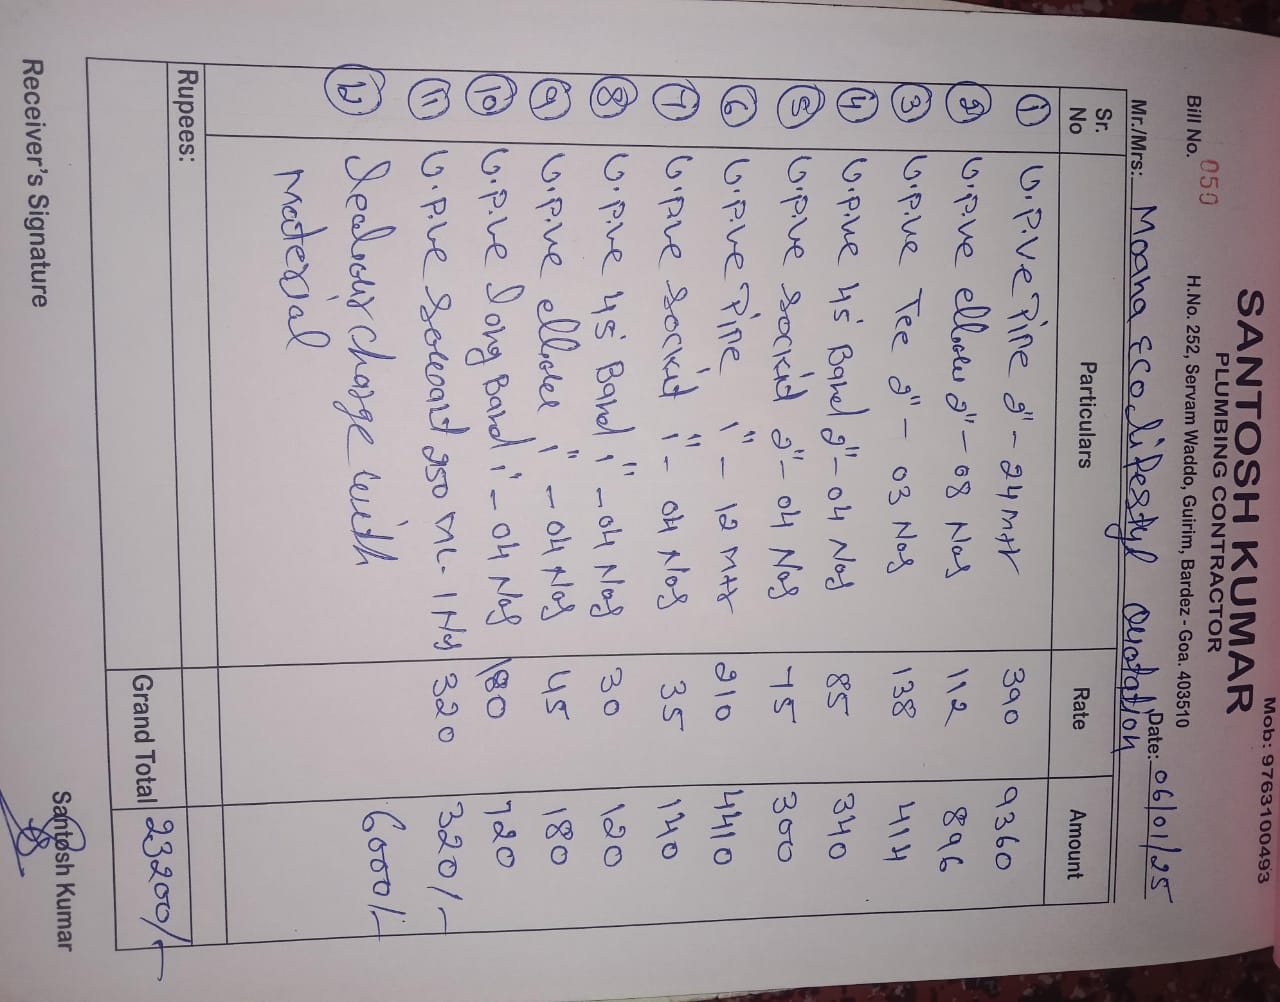 Mob: 9763100493
SANTOSH KUMAR
PLUMBING CONTRACTOR
Bill No. 050
H.No. 252, Servam Waddo, Guirim, Bardez - Goa. 403510
Date: 06/01/25
Mr./Mrs: Moana Eco lifestyl Quotation
Sr. No Particulars Rate Amount
1 U.P.Ve Pipe 2" - 24 Mtr 390 9360
2 U.P.Ve ellbow 2" - 08 Nos 112 896
3 U.P.Ve Tee 2" - 03 Nos 138 414
4 U.P.Ve 45° Band 2" - 04 Nos 85 340
5 U.P.Ve Sockid 2" - 04 Nos 75 300
6 U.P.Ve Pipe 1" - 12 Mtr 210 4410
7 U.P.Ve Sockit 1" - 04 Nos 35 140
8 U.P.Ve 45° Band 1" - 04 Nos 30 120
9 U.P.Ve ellbow 1" - 04 Nos 45 180
10 U.P.Ve long Band 1" - 04 Nos 180 720
11 U.P.Ve 250 ML - 1 Nos 320 320/-
12 charge with 6000/-
Material
Rupees:
Grand Total 23200/-
Santosh Kumar
Receiver's Signature